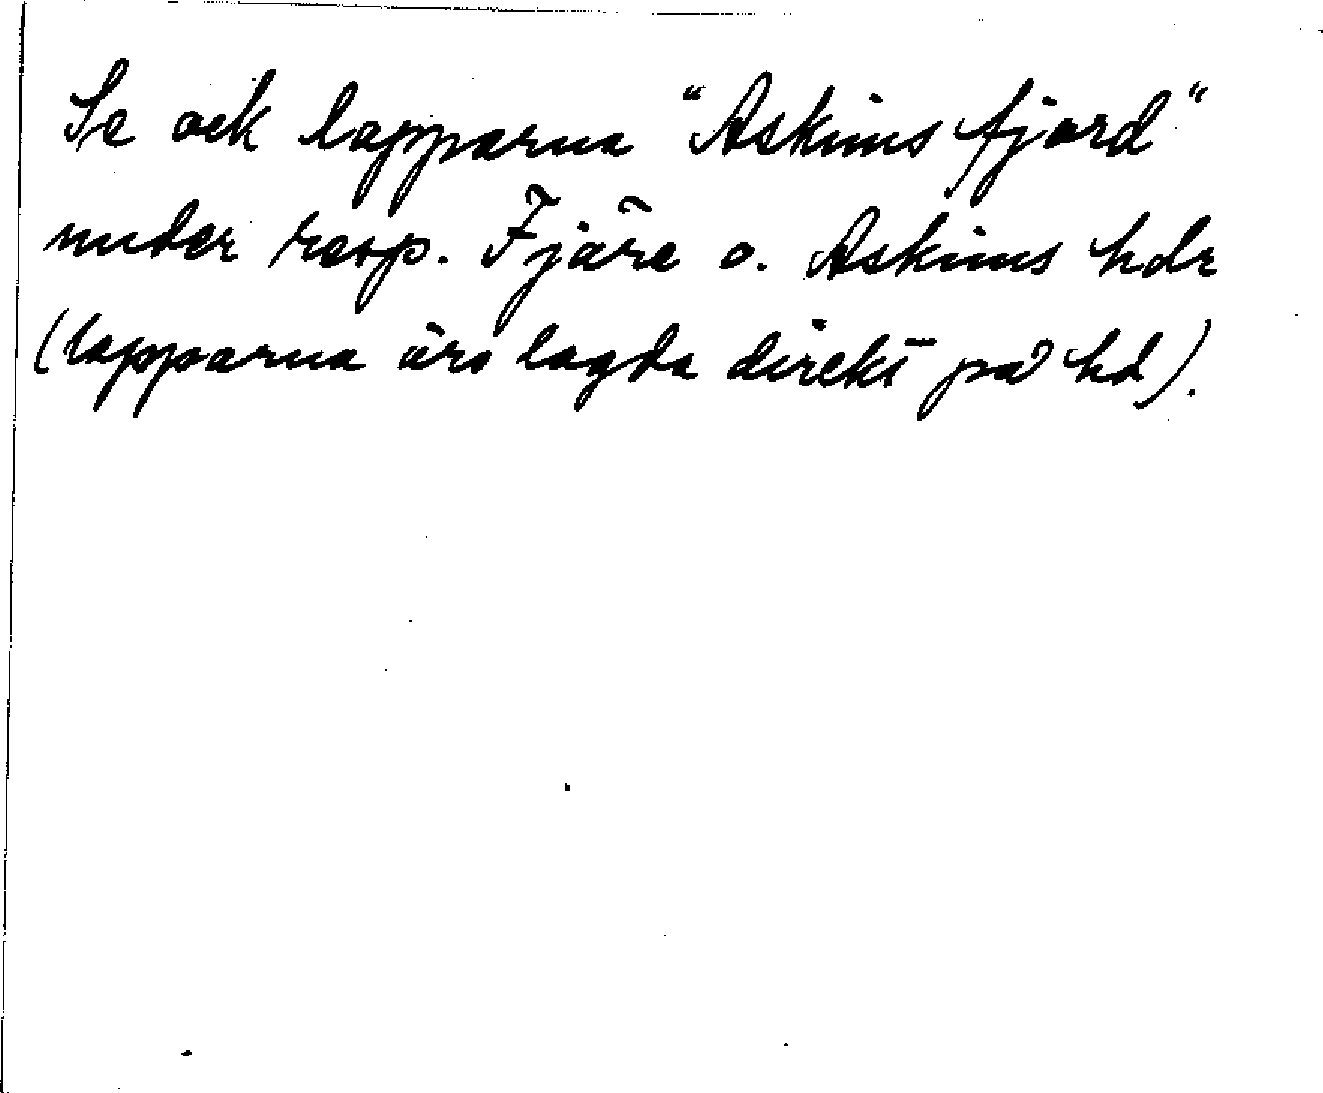 Se ock lapparna "Askims fjord"
under resp. Fjäre o. Askims hdr
(lapparna äro lagda direkt på hd).